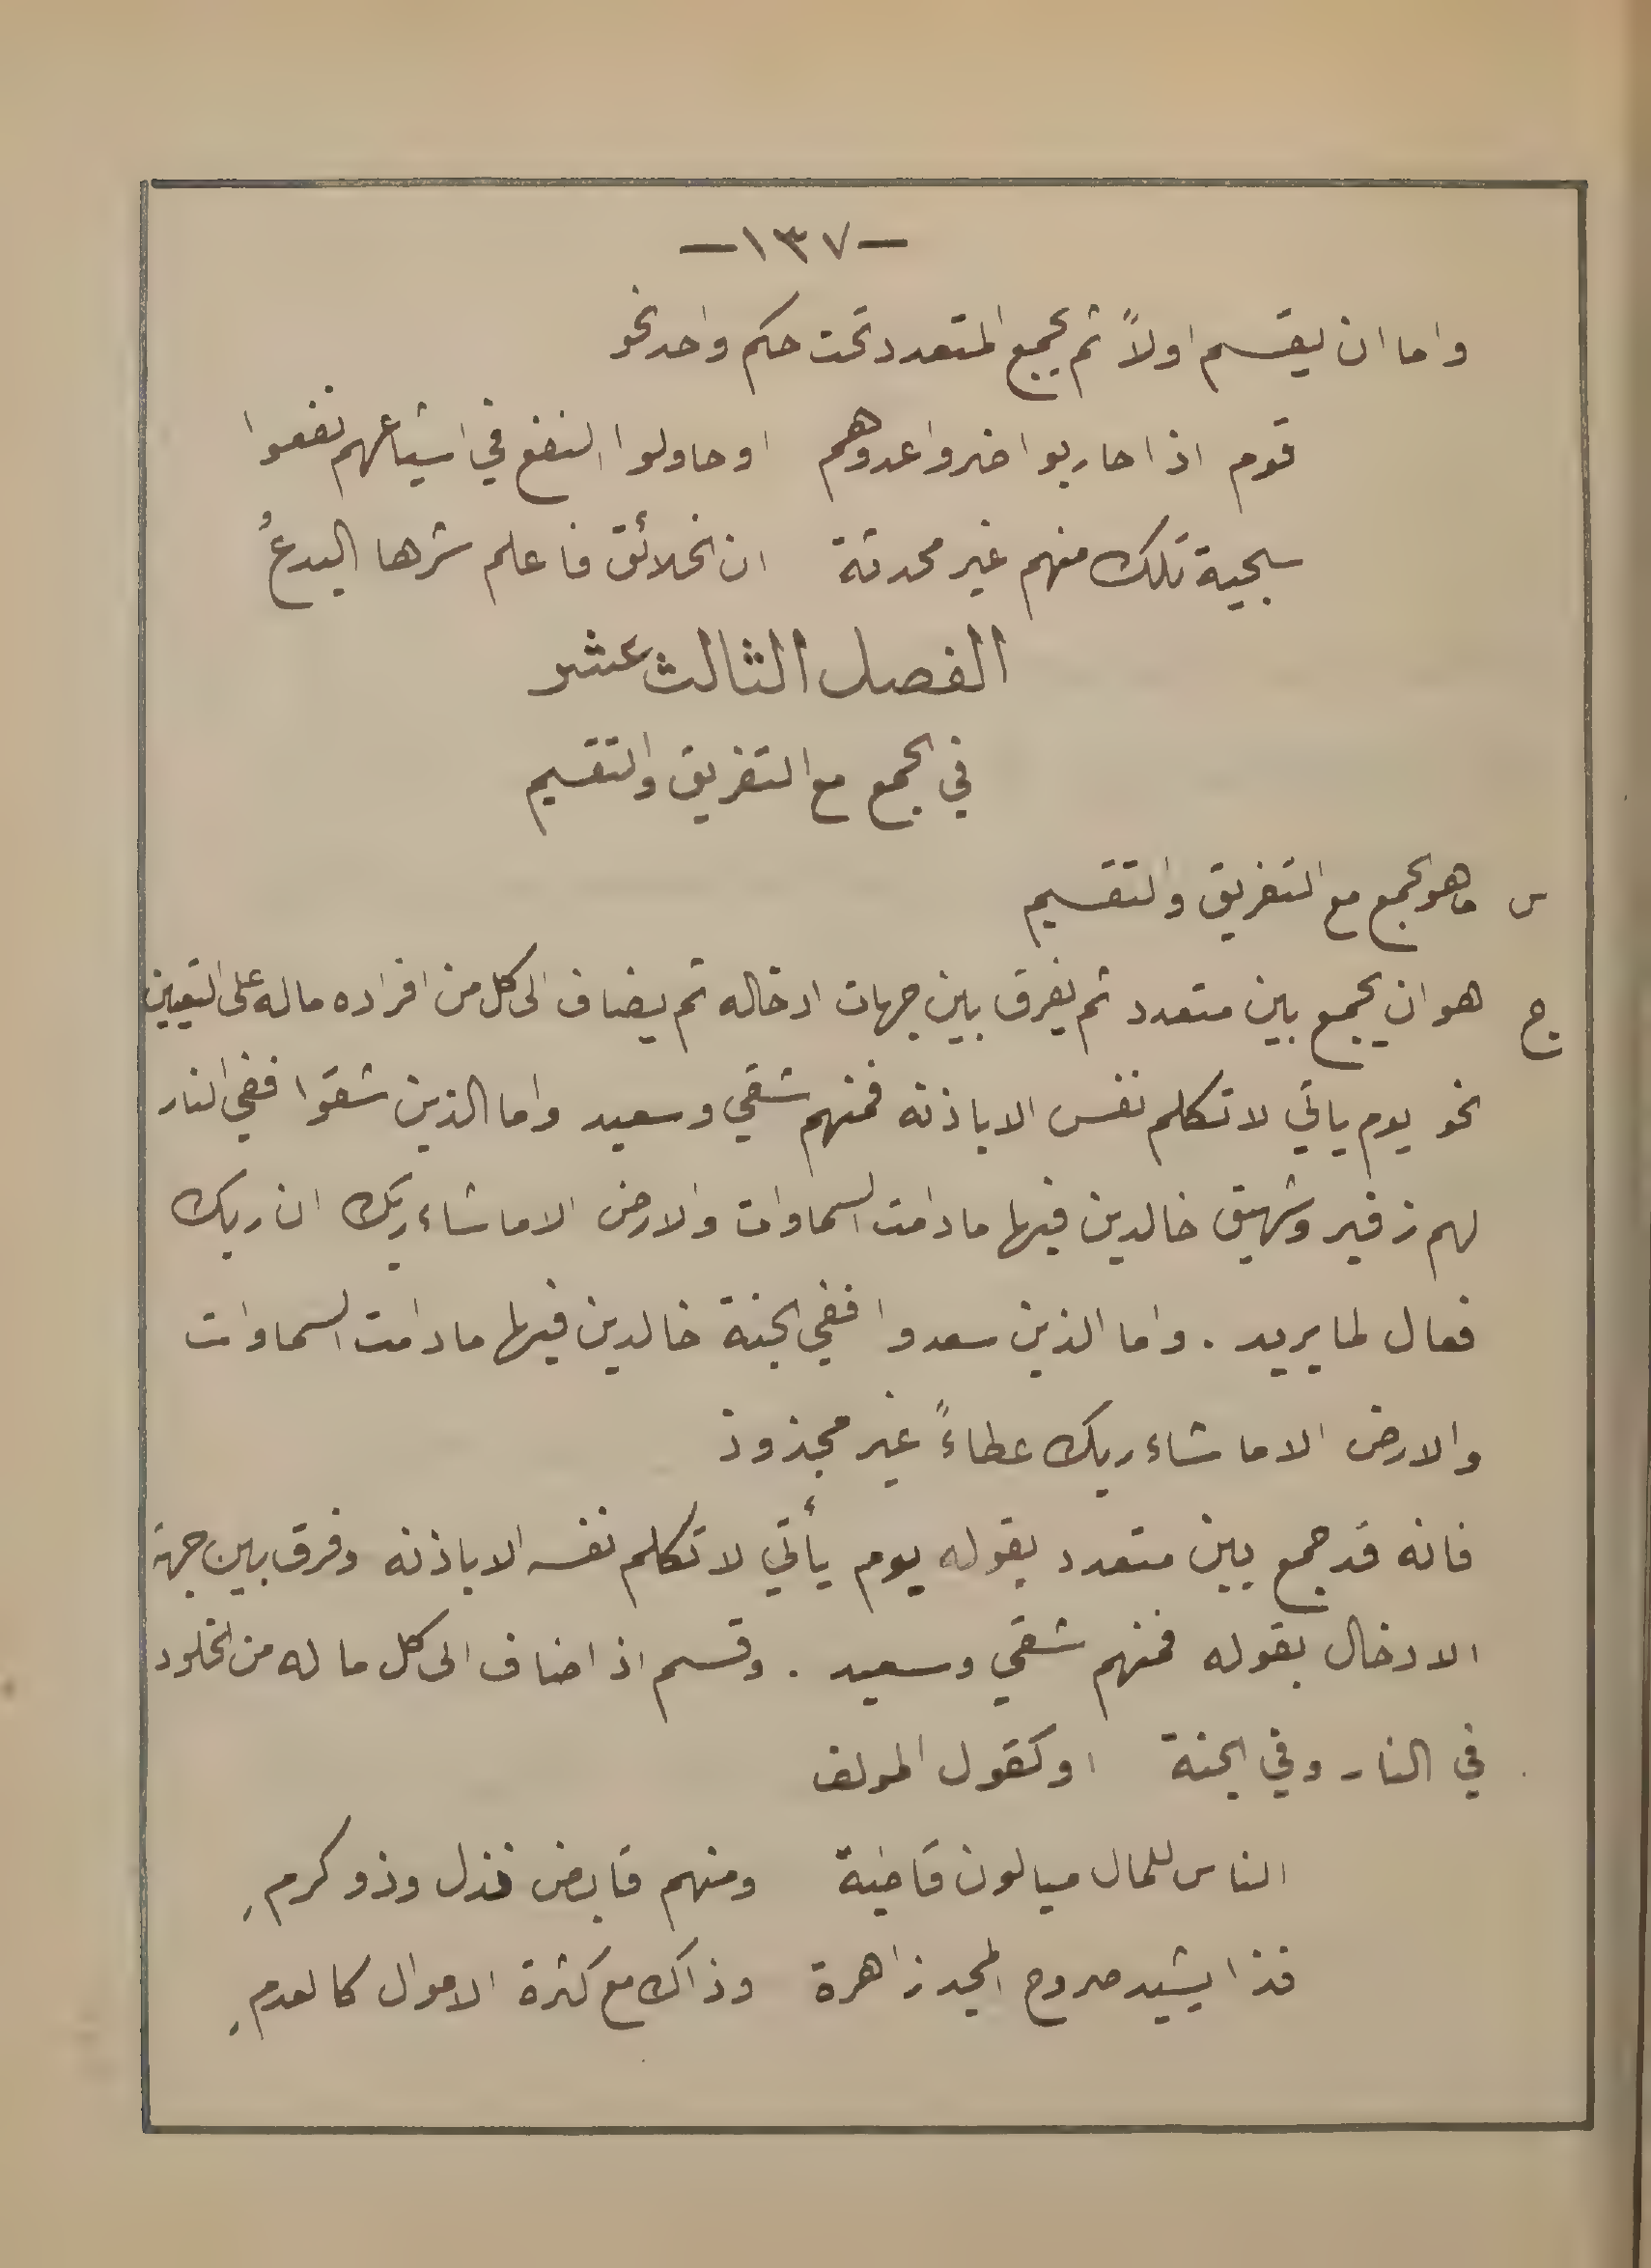 —١٣٧—
واما ان يقسم اولاً ثم يجمع المتعدد تحت حكم واحد نحو
قوم اذا حاربوا ضروا عدوهم او حاولوا النفع في اشياعهم نفعوا
سجية تلك منهم غير محدثة ان الخلائق فاعلم شرها البدعُ
الفصل الثالث عشر
في الجمع مع التفريق والتقسيم
س ما هو الجمع مع التفريق والتقسيم
ج هو ان يجمع بين متعدد ثم يفرق بين جهات ادخاله ثم يضاف الى كل من افراده ما له على التعيين
نحو يوم ياتي لا تكلم نفس الا باذنه فمنهم شقي وسعيد واما الذين شقوا ففي النار
لهم زفير وشهيق خالدين فيها ما دامت السماوات والارض الا ما شاء ربك ان ربك
فعال لما يريد . واما الذين سعدوا ففي الجنة خالدين فيها ما دامت السماوات
والارض الا ما شاء ربك عطاءً غير مجذوذ
فانه قد جمع بين متعدد بقوله يوم يأتي لا تكلم نفس الا باذنه وفرق بين جهة
الادخال بقوله فمنهم شقي وسعيد . وقسم اذ اضاف الى كل ما له من الخلود
في النار وفي الجنة او كقول المولف
الناس للمال ميالون قاطبة ومنهم قابض نذل وذو كرمِ
فذا يشيد صروح المجد زاهرة وذاك مع كثرة الاموال كالعدمِ